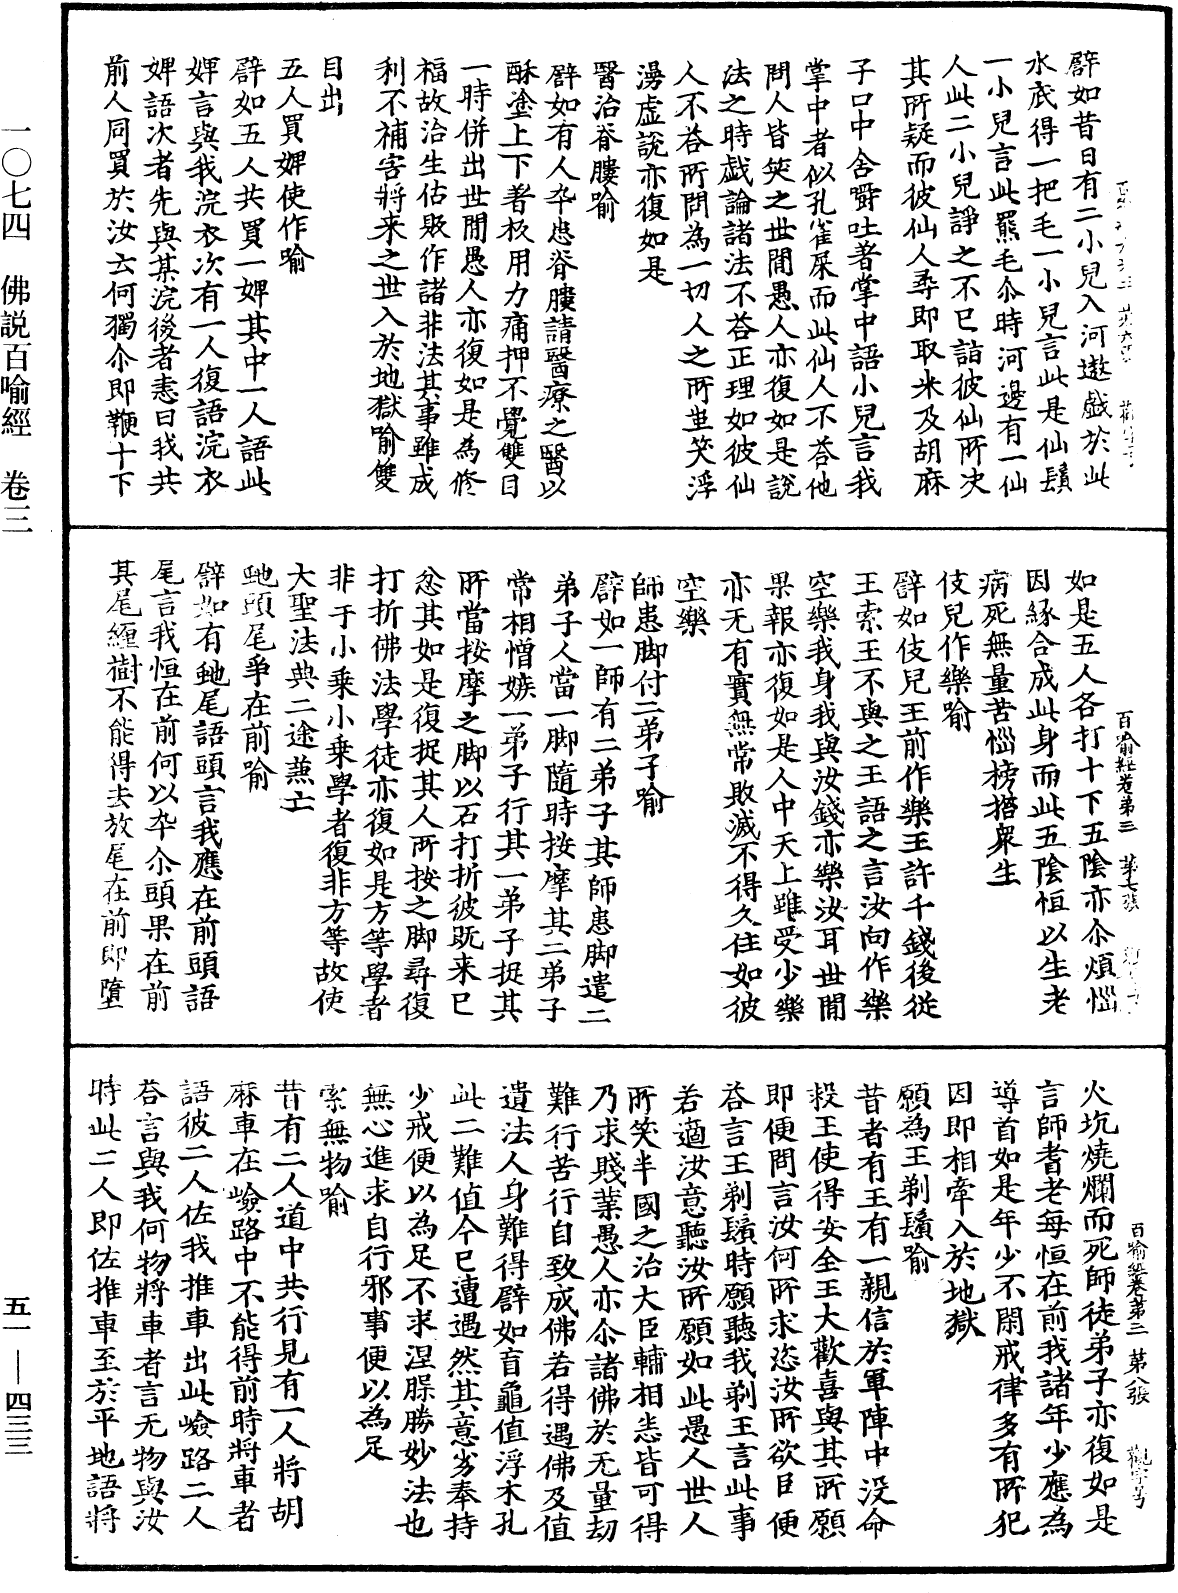 譬如昔日有二小兒入河遨戲於此
水底得一把毛一小兒言此是仙鬚
一小兒言此羆毛尒時河邊有一仙
人此二小兒諍之不已詣彼仙所決
其所疑而彼仙人尋即取米及胡麻
子口中含嚼吐著掌中語小兒言我
掌中者似孔雀屎而此仙人不荅他
問人皆笑之世間愚人亦復如是說
法之時戲論諸法不荅正理如彼仙
人不荅所問為一切人之所蚩笑浮
漫虛說亦復如是
醫治脊膢喻
譬如有人卒患脊膢請醫療之醫以
酥塗上下著板用力痛押不覺雙目
一時併出世間愚人亦復如是為修
福故治生估販作諸非法其事雖成
利不補害將来之世入於地獄喻雙
目出
五人買婢使作喻
譬如五人共買一婢其中一人語此
婢言與我浣衣次有一人復語浣衣
婢語次者先與某浣後者恚曰我共
前人同買於汝云何獨尒即鞭十下
百喻經卷第三 第七張
如是五人各打十下五陰亦尒煩惱
因緣合成此身而此五陰恒以生老
病死無量苦惱榜揩衆生
伎兒作樂喻
譬如伎兒王前作樂王許千錢後從
王索王不與之王語之言汝向作樂
空樂我身我與汝錢亦樂汝耳世間
果報亦復如是人中天上雖受少樂
亦无有實無常敗滅不得久住如彼
空樂
師患脚付二弟子喻
譬如一師有二弟子其師患脚遣二
弟子人當一脚隨時按摩其二弟子
常相憎嫉一弟子行其一弟子捉其
所當按摩之脚以石打折彼既来已
忿其如是復捉其人所按之脚尋復
打折佛法學徒亦復如是方等學者
非于小乘小乘學者復非方等故使
大聖法典二途蒹亡
虵頭尾爭在前喻
譬如有虵尾語頭言我應在前頭語
尾言我恒在前何以卒尒頭果在前
其尾纏樹不能得去放尾在前即墮
百喻經卷第三 第八張
火坑燒爛而死師徒弟子亦復如是
言師耆老每恒在前我諸年少應為
導首如是年少不閑戒律多有所犯
因即相牽入於地獄
願為王剃鬚喻
昔者有王有一親信於軍陣中没命
殺王使得安全王大歡喜與其所願
即便問言汝何所求恣汝所欲臣便
荅言王剃鬚時願聽我剃王言此事
若適汝意聽汝所願如此愚人世人
所笑半國之治大臣輔相恚皆可得
乃求賤業愚人亦尒諸佛於无量劫
難行苦行自致成佛若得遇佛及值
遺法人身難得譬如盲龜值浮木孔
此二難值今已遭遇然其意劣奉持
少戒便以為足不求涅脵勝妙法也
無心進求自行邪事便以為足
索無物喻
昔有二人道中共行見有一人將胡
麻車在嶮路中不能得前時將車者
語彼二人佐我推車出此嶮路二人
荅言與我何物將車者言无物與汝
時此二人即佐推車至於平地語將
一〇七四 佛説百喻經 卷三
五一 — 四三三